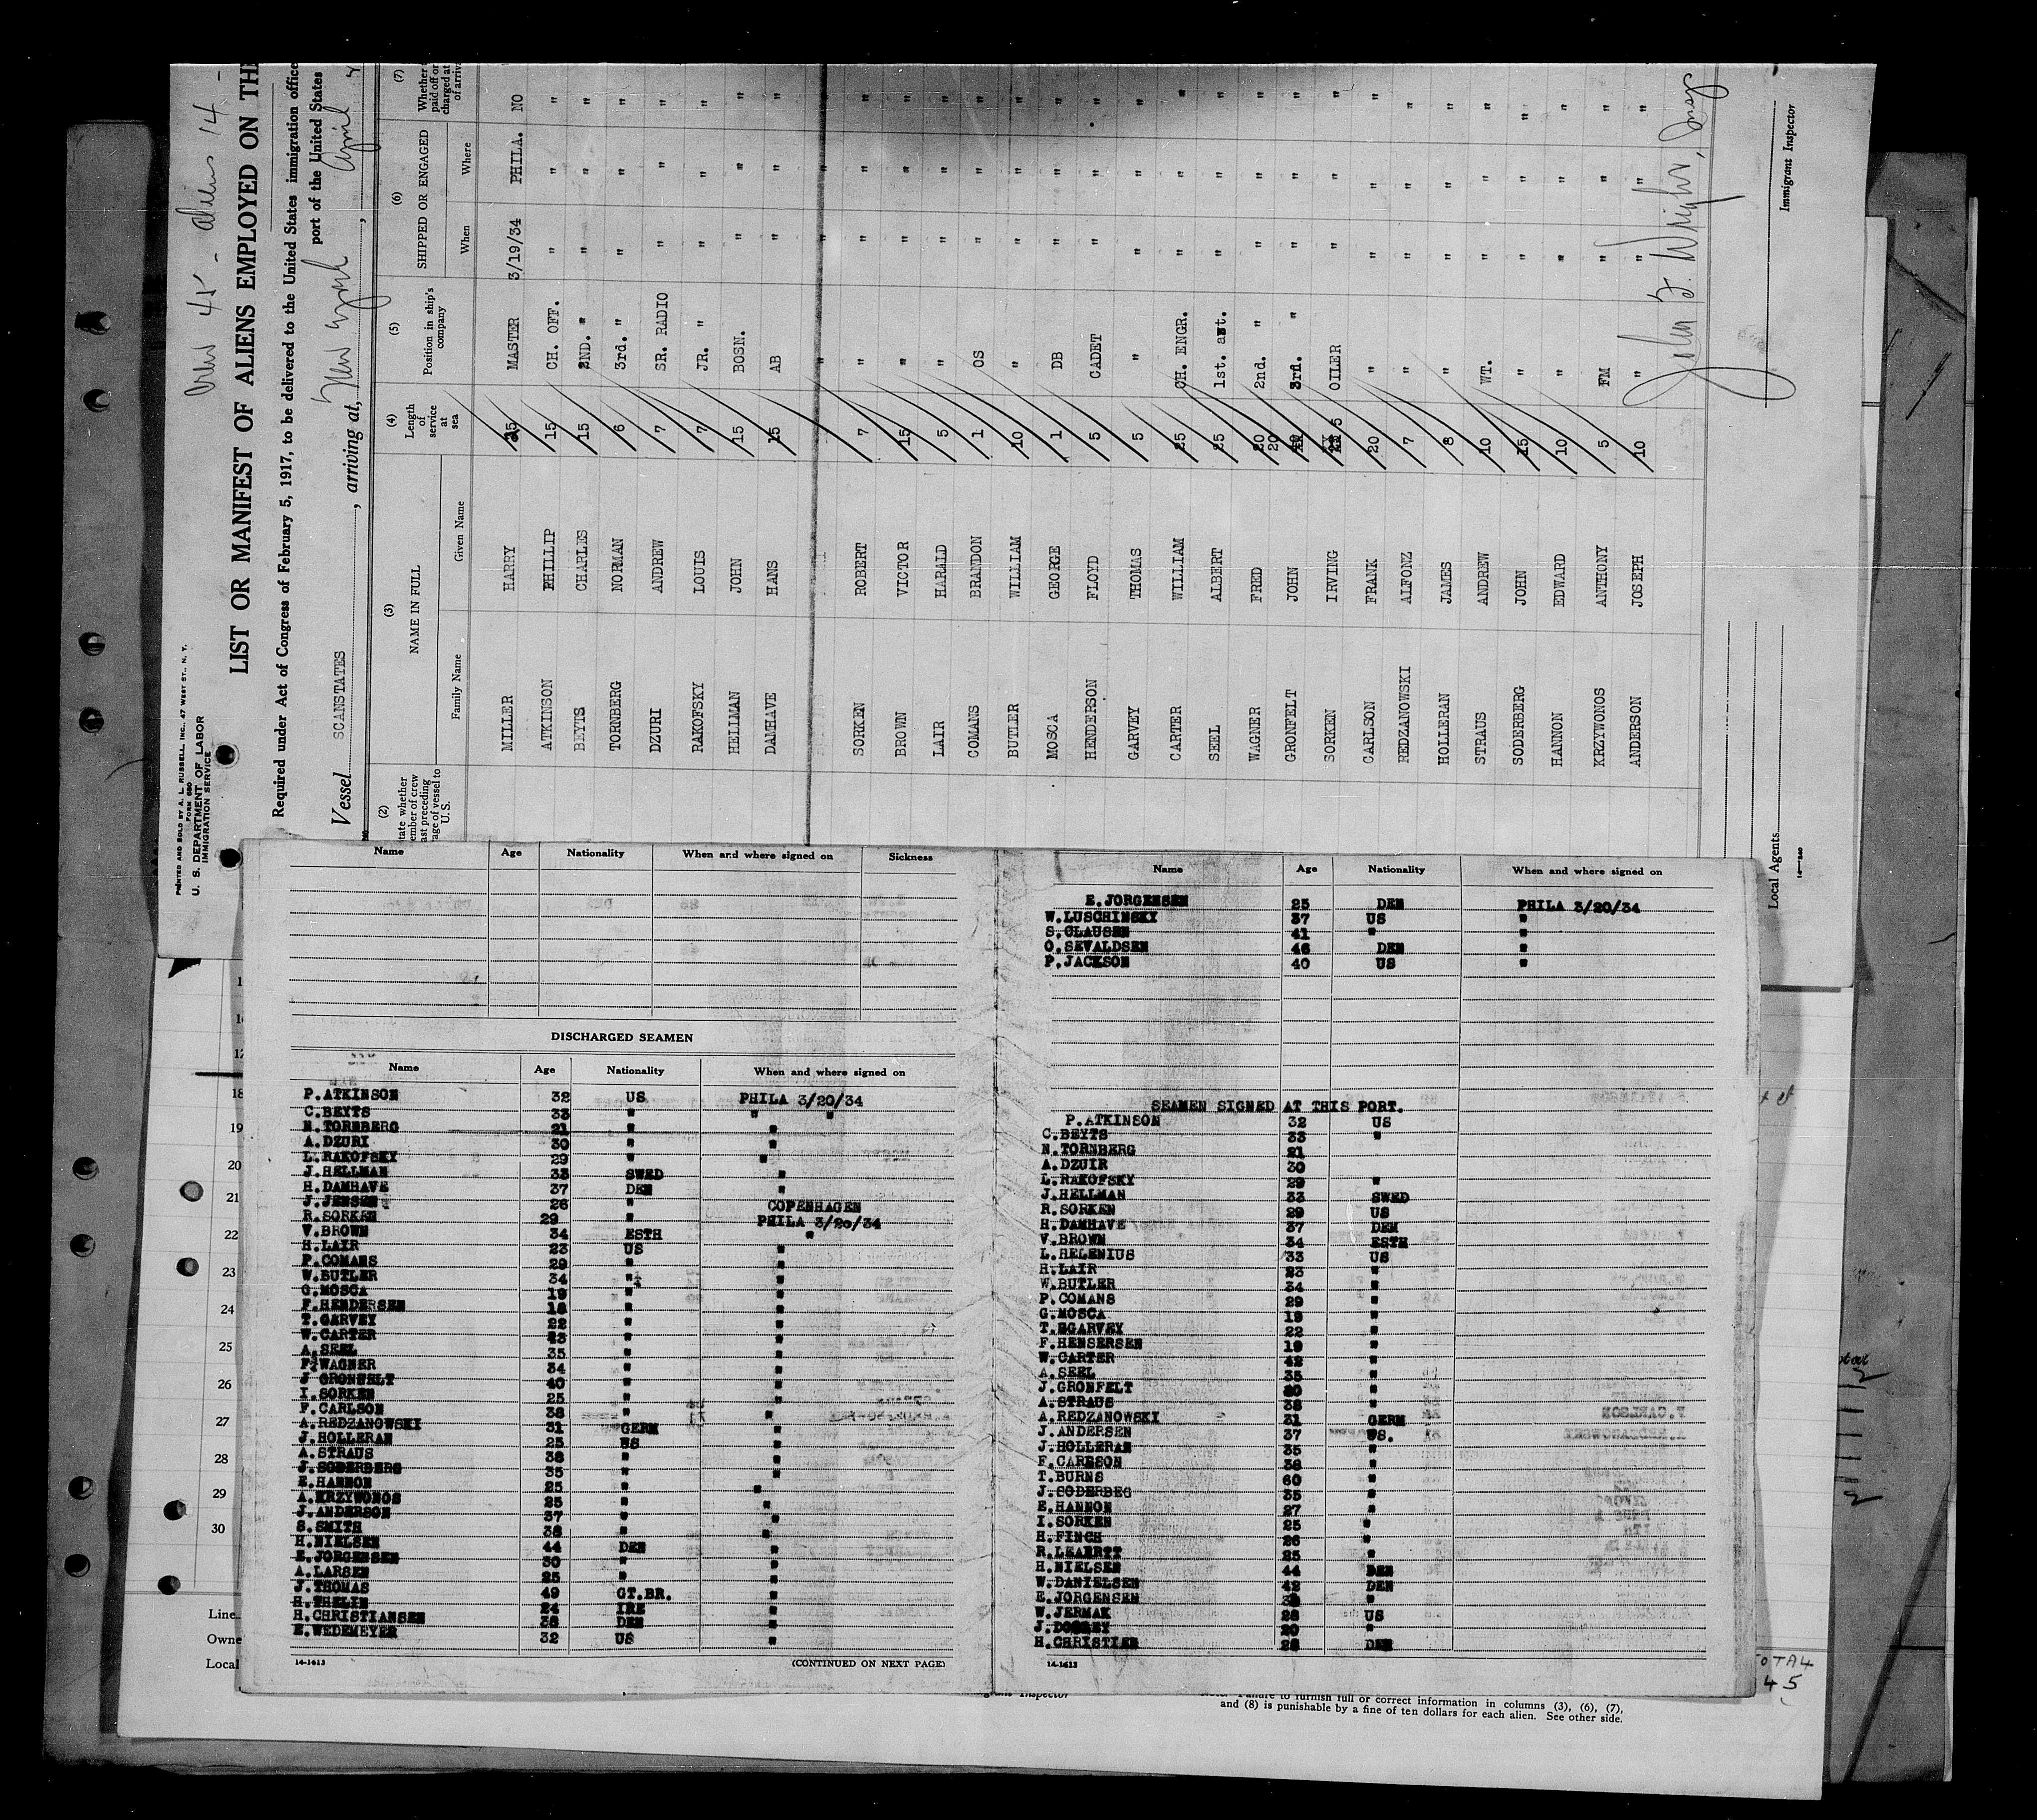 Crew 45 - aliens 14 -
PRINTED AND SOLD BY A. L. RUSSELL INC., 47 WEST ST., N. Y.
FORM 680
U. S. DEPARTMENT OF LABOR
IMMIGRATION SERVICE
LIST OR MANIFEST OF ALIENS EMPLOYED ON TH
Required under Act of Congress of February 5, 1917, to be delivered to the United States immigration office
port of the United States
Vessel SCANSTATES, arriving at, New York, April
(2) (3) (4) (5) (6) (7)
tate whether ember of crew ast preceding age of vessel to U. S. NAME IN FULL Length of service at sea Position in ship's company SHIPPED OR ENGAGED Whether paid off or charged at of arriva
Family Name Given Name When Where
MILLER HARRY 25 MASTER 3/19/34 PHILA. NO
ATKINSON PHILLIP 15 CH. OFF. " " "
BEYTS CHARLES 15 2ND. " " " "
TORNBERG NORMAN 6 3rd. " " " "
DZURI ANDREW 7 SR. RADIO " " "
RAKOFSKY LOUIS 7 JR. " " " "
HELLMAN JOHN 15 BOSN. " " "
DAMHAVE HANS 15 AB " " "
" " "
SORKEN ROBERT 7 " " " "
BROWN VICTOR 15 " " " "
LAIR HARALD 5 " " " "
COMANS BRANDON 1 OS " " "
BUTLER WILLIAM 10 " " " "
MOSCA GEORGE 1 DB " " "
HENDERSON FLOYD 5 CADET " " "
GARVEY THOMAS 5 " " " "
CARTER WILLIAM 25 CH. ENGR. " " "
SEEL ALBERT 25 1st. ast. " " "
WAGNER FRED 20 2nd. " " " "
GRONFELT JOHN 20 3rd. " " " "
SORKEN IRVING 5 OILER " " "
CARLSON FRANK 20 " " " "
REDZANOWSKI ALFONZ 7 " " " "
HOLLERAN JAMES 8 " " " "
STRAUS ANDREW 10 WT. " " "
SODERBERG JOHN 15 " " " "
HANNON EDWARD 10 " " " "
KRZYWONOS ANTHONY 5 FM " " "
ANDERSON JOSEPH 10 " " " "
John F. Wright, Insp
Immigrant Inspector
Local Agents
Name Age Nationality When and where signed on Sickness
DISCHARGED SEAMEN
Name Age Nationality When and where signed on
P.ATKINSON 32 US PHILA 3/20/34
C.BEYTS 33 " " "
N.TORNBERG 21 " "
A.DZURI 30 " "
L.RAKOFSKY 29 " "
J.HELLMAN 33 SWED "
H.DAMHAVE 37 DEN "
J.JENSEN 26 " COPENHAGEN
R.SORKEN 29 " PHILA 3/20/34
V.BROWN 34 ESTH "
H.LAIR 23 US "
P.COMANS 29 " "
W.BUTLER 34 " "
G.MOSCA 19 " "
F.HENDERSEN 18 " "
T.GARVEY 22 " "
W.CARTER 43 " "
A.SEEL 35 " "
F.WAGNER 34 " "
J GRONFELT 40 " "
I.SORKEN 25 " "
F.CARLSON 38 " "
A.REDZANOWSKI 31 GERM "
J.HOLLERAN 25 US "
A.STRAUS 38 " "
J.SODERBERG 35 " "
E.HANNON 25 " "
A.KRZYWONOS 25 " "
J.ANDERSON 37 " "
S.SMITH 38 " "
H.NIELSEN 44 DEN "
E.JORGENSEN 30 " "
A.LARSEN 25 " "
J.THOMAS 49 GT.BR. "
H.THELIN 24 IRE "
H.CHRISTIANSEN 38 DEN "
E.WEDEMEYER 32 US "
14-1613 (CONTINUED ON NEXT PAGE)
Name Age Nationality When and where signed on
E.JORGENSEN 25 DEN PHILA 3/20/34
W.LUSCHINSKY 37 US "
S.CLAUSEN 41 " "
O.SEVALDSEN 46 DEN "
P.JACKSON 40 US "
SEAMEN SIGNED AT THIS PORT.
P.ATKINSON 32 US
C.BEYTS 33 "
N.TORNBERG 21
A.DZUIR 30
L.RAKOFSKY 29 "
J.HELLMAN 33 SWED
R.SORKEN 29 US
H.DAMHAVE 37 DEN
V.BROWN 34 ESTH
L.HELENIUS 33 US
H.LAIR 23 "
W.BUTLER 34 "
P.COMANS 29 "
G.MOSCA 19 "
T.EGARVEY 22 "
F.HENSERSEN 19 "
W.CARTER 42 "
A.SEEL 35 "
J.GRONFELT 20 "
A.STRAUS 38 "
A.REDZANOWSKI 31 GERM
J.ANDERSEN 37 US.
J.HOLLERAN 35 "
F.CARLSON 38 "
T.BURNS 60 "
J.SODERBEG 35 "
E.HANNON 27 "
I.SORKEN 25 "
H.FINCH 26 "
R.LEABRTT 25 "
H.NIELSEN 44 DEN
W.DANIELSEN 42 DEN
E.JORGENSEN "
W.JERMAK 28 US
J. 20 "
H.CHRISTIEN 28 DEN
14-1613
18
19
20
21
22
23
24
25
26
27
28
29
30
Line
Owne
Local
TOTAL
45
Immigrant Inspector
Note. Failure to furnish full or correct information in columns (3), (6), (7),
and (8) is punishable by a fine of ten dollars for each alien. See other side.